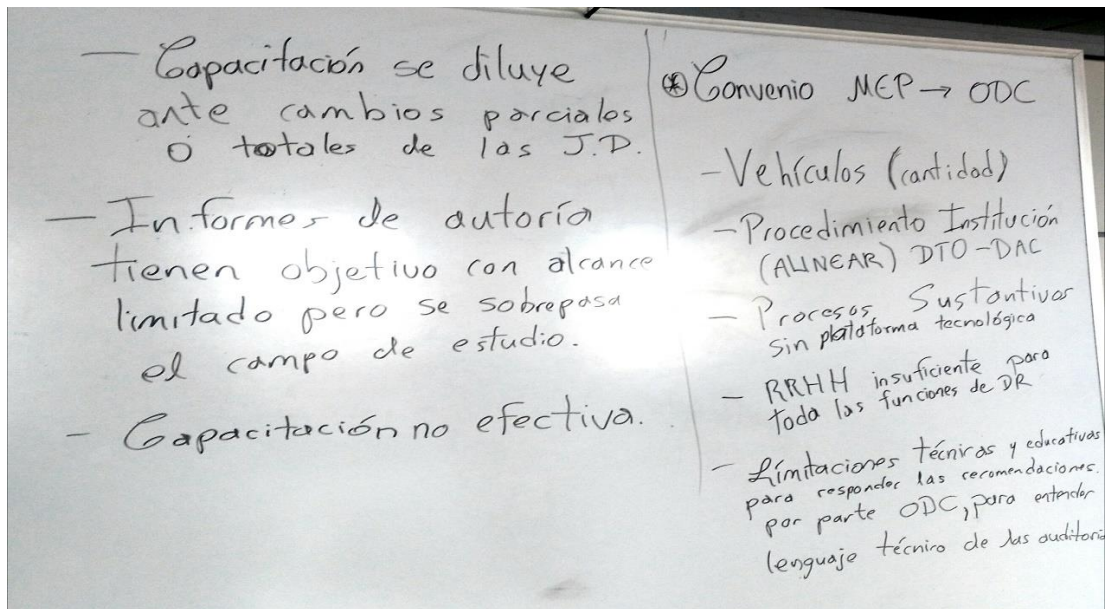 — Capacitación se diluye
ante cambios parciales
o totales de las J.D.
— Informes de autoría
tienen objetivo con alcance
limitado pero se sobrepasa
el campo de estudio.
- Capacitación no efectiva.
* Convenio MEP → ODC
- Vehículos (cantidad)
- Procedimiento Institución
(ALINEAR) DTO-DAC
- Procesos Sustantivos
sin plataforma tecnológica
- RRHH insuficiente para
toda las funciones de DR
- Limitaciones técnicas y educativas
para responder las recomendaciones.
por parte ODC, para entender
lenguaje técnico de las auditoria